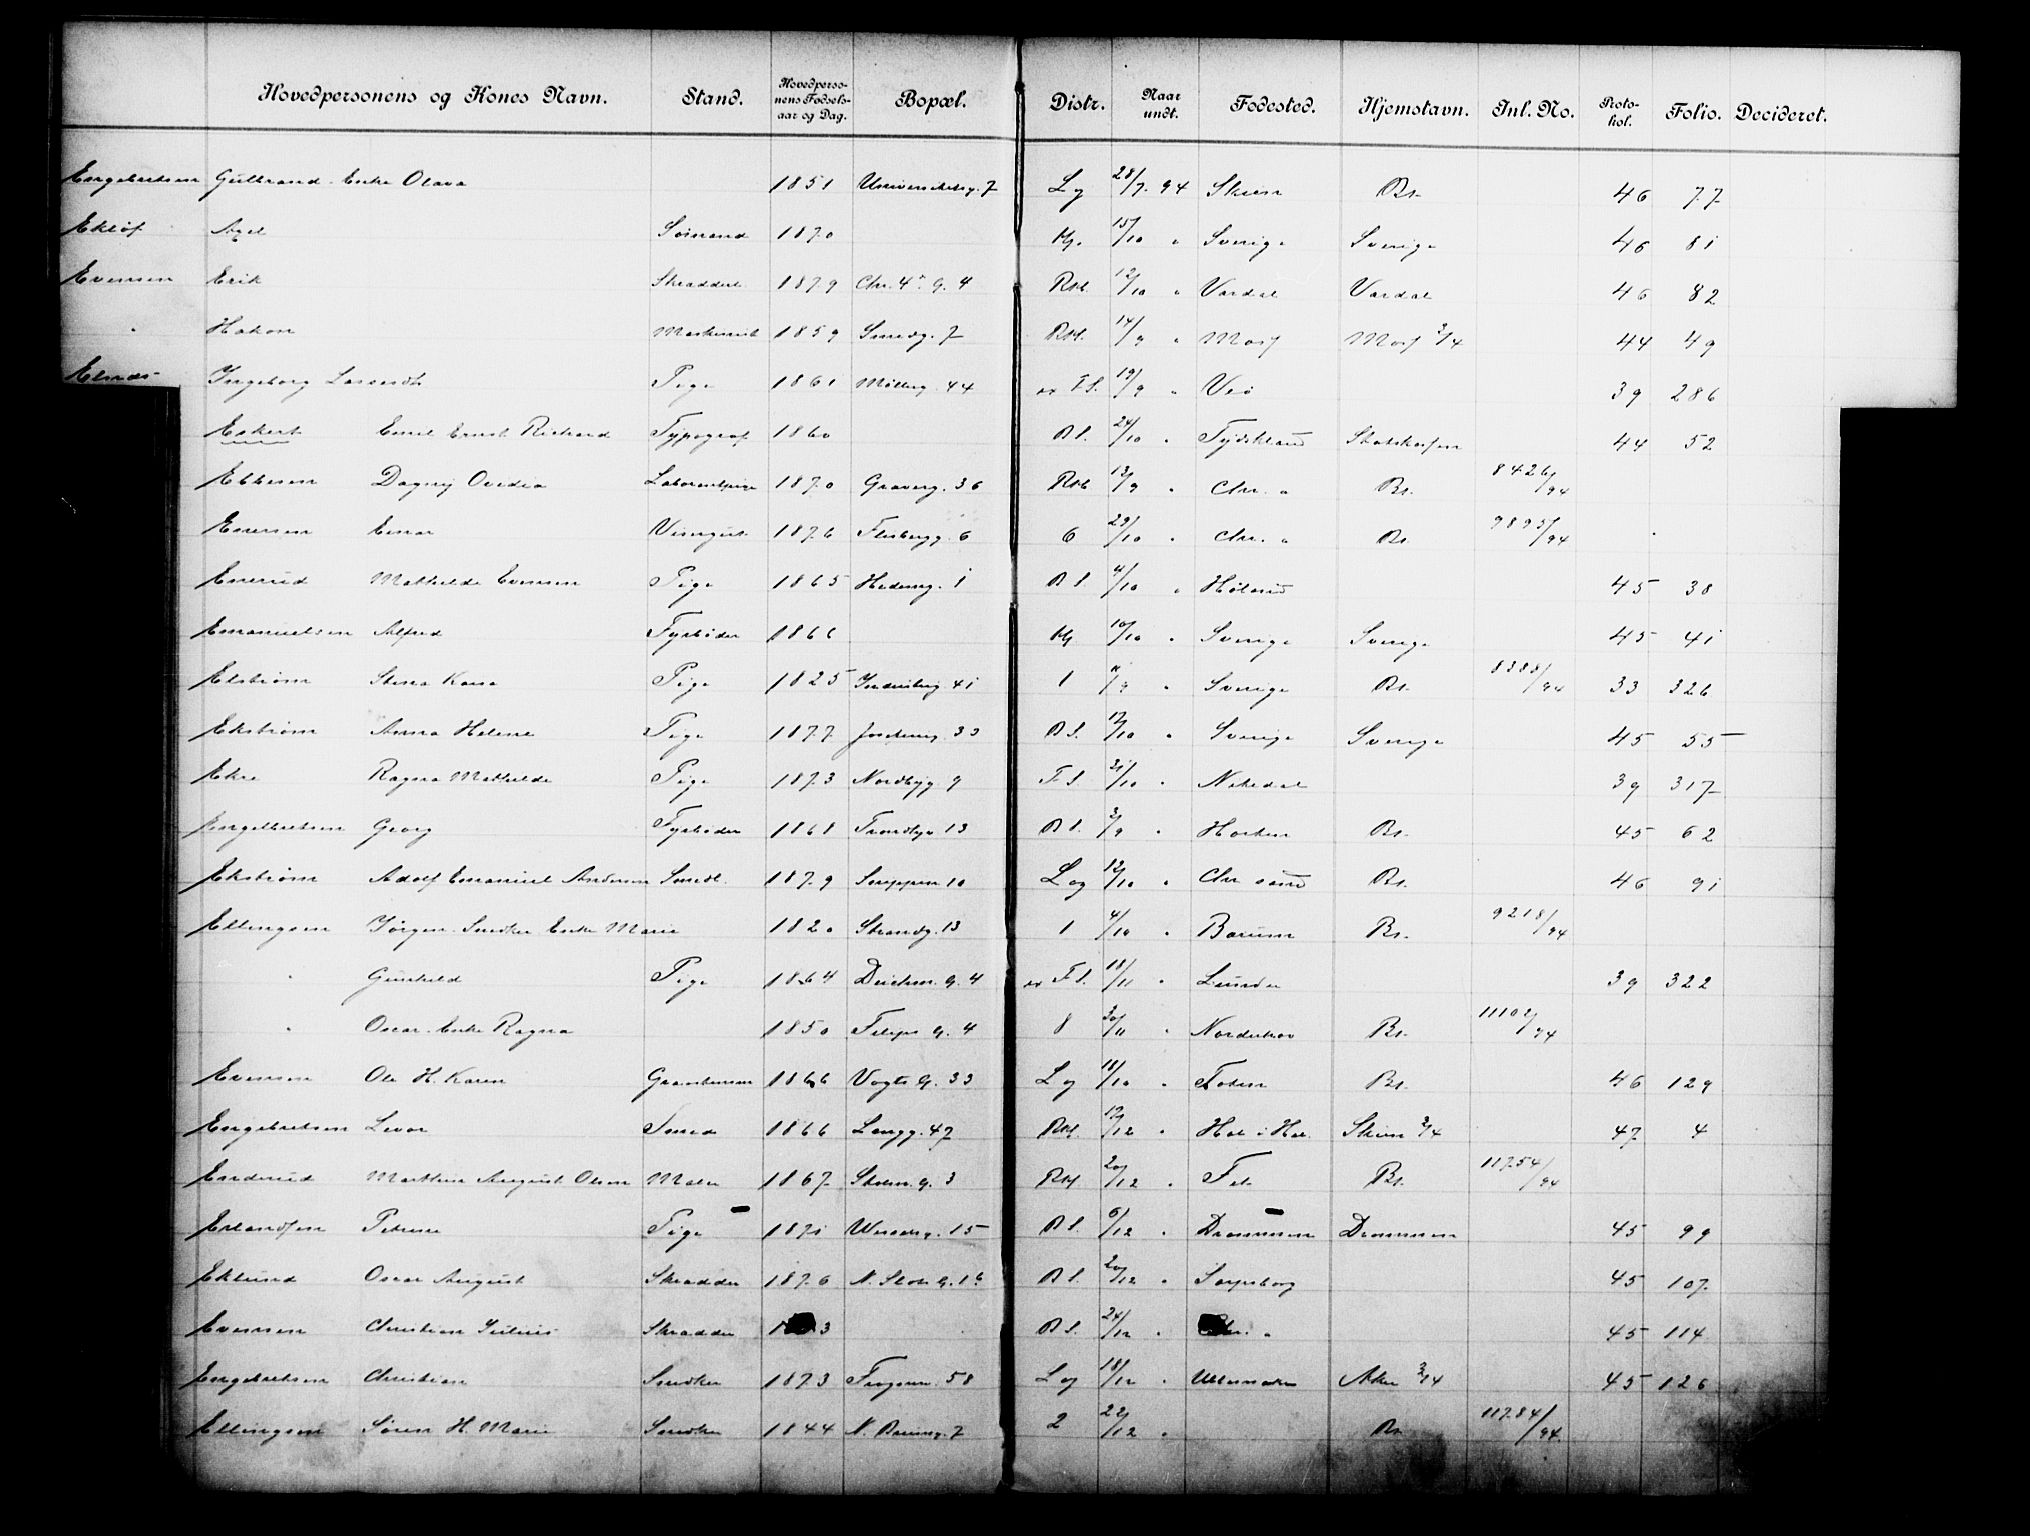 Hovedpersonens og Kones Navn. Stand. Hovedperso-nens Fødsels-aar og Dag. Bopæl. Distr. Naar undt. Fødested. Hjemstavn. Inl. No. Proto-kol. Folio. Decideret.
Engebretsen Gulbrand Enke Olava 1851 Universitetsg. 7 Lg 28/7 94 Skien Bt. 46 77
Ekløf Axel Sømand 1870 Hj. 15/10 " Sverige Sverige 46 81
Evensen Erik Skrædderl. 1879 Chr. 4 G. 4 Rst. 12/10 " Vardal Vardal 46 82
" Hakon Maskinist 1859 Smedg. 7 Rst. 14/9 " Moss Moss 3/4 44 49
Ingeborg Larsesdt. Pige 1861 Møllerg. 44 F.S. 19/9 " Veö 39 286
Eckert Emil Ernst Richard Typograf 1860 B S. 24/10 " Tydskland 44 52
Ebbesen Dagny Ovedia 1870 Graverg. 36 Rst 13/9 " Chr. a Bt. 8426/94
Enersen Einar Visergut 1876 Flisbergg. 6 6 29/10 " Chr. a Bt. 9895/94
Enerud Mathilde Evensen Pige 1865 Hedemg. 1 B S. 4/10 " Høland 45 38
Emanuelsen Alfred Fyrbøder 1866 Hj. 10/10 " Sverige Sverige 45 41
Elstrøm Stina Kaisa Pige 1825 41 1 11/9 " Sverige Bt. 8388/94 33 326
Ekstrøm Anna Helene Pige 1877 33 B S. 17/10 " Sverige Sverige 45 55
Ekre Ragna Mathilde Pige 1873 Nordbyg. 9 F.S. 31/10 " Nitedal 39 317
Engelbretsen Georg Fyrbøder 1868 Trondhjv 13 B S. 3/9 " Horten Bt. 45 62
Ekstrøm Adolf Emanuel Andersen Smedl. 1879 Snippen 10 Log 12/10 " Chr sand Bt. 46 91
Ellingsen Jørgen Snedker Enke Marie 1820 Strandg. 13 1 4/10 " Bærum Bt. 9218/94
" Gunhild Pige 1864 Deichm. G. 4 F.S. 18/11 " Lunder 39 322
" Oscar Enke Ragna 1850 Filips G. 4 8 30/11 " Norderhov Bt. 11102/94
Evensen Ole H. Karen 1866 Vogts G. 33 Log 18/10 " Toten Bt. 46 129
Engebretsen Levor Smed 1866 Langg. 47 Rst. 19/12 " Hol i Hal. Skien 3/4 47 4
Enderud Matthias August Olsen Maler 1867 Stolm. G. 3 Rst 20/12 " Fet Bt. 11754/94
Erlandsen Petrine Pige 1871 15 B S. 6/12 " Drammen Drammen 45 99
Eklund Oscar August Skrædder 1876 N. Slots G. 16 B S. 20/12 " Sarpsborg 45 107
Evensen Christian Julius Skrædder 3 B S. 24/12 " Chr. a 45 114
Engebretsen Christian Snedker 1873 Frognerv. 58 Log 18/12 " Ullensaker Aker 3/4 45 126
Ellingsen Søren H. Marie Snedker 1844 N. Bærumsg. 7 2 22/12 " Bt. 11784/94